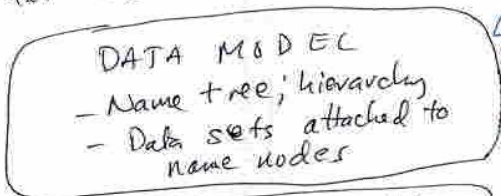 DATA MODEL
- Name tree; hierarchy
- Data sets attached to
name nodes